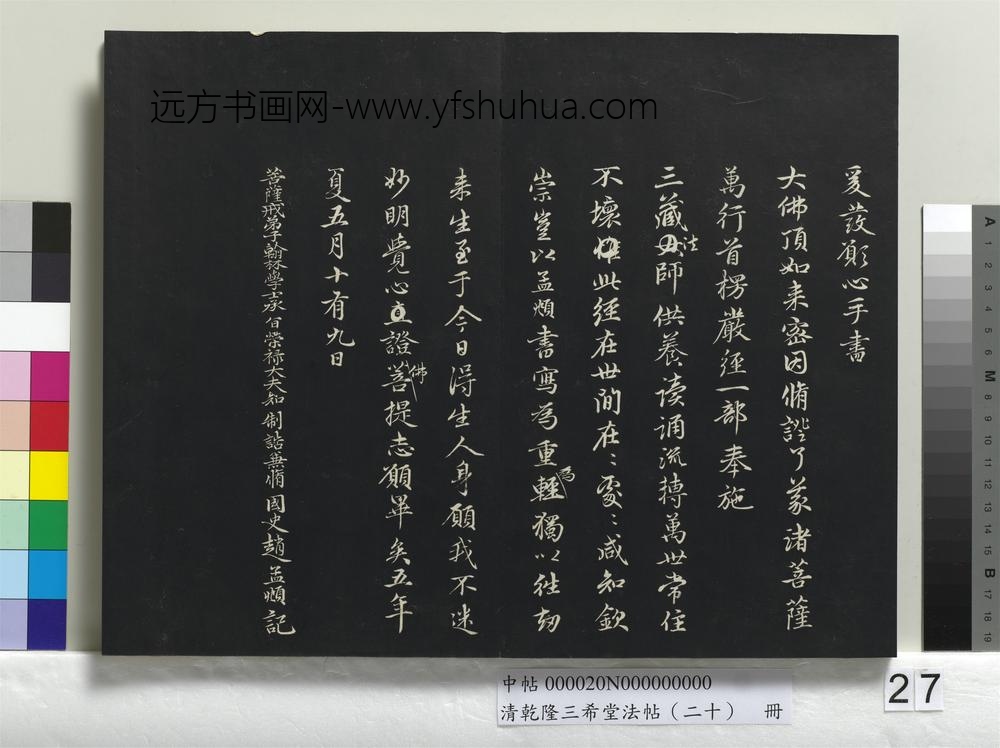 远方书画网-www.yfshuhua.com
爰發願心手書
大佛頂如来密因脩證了義諸菩薩
萬行首楞嚴經一部奉施
三藏法師供養读诵流轉萬世常住
不壞惟此經在世間在〻處〻咸知欽
崇豈以孟頫書寫為重為輕獨以往劫
来生至于今日得生人身願我不迷
妙明覺心直證佛菩提志願畢矣五年
夏五月十有九日
菩薩戒弟子翰林學士承旨榮禄大夫知制誥兼脩國史趙孟頫記
中帖 000020N000000000
清乾隆三希堂法帖（二十） 冊
27
A 1 2 3 4 5 6 M 8 9 10 11 12 13 14 15 B 17 18 19